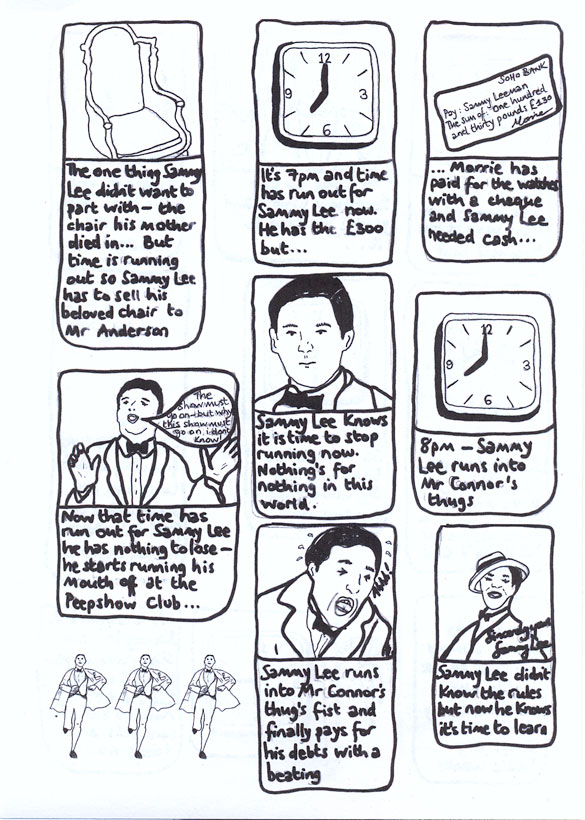 The one thing Sammy
Lee didn't want to
part with - the
chair his mother
died in... But
time is running
out so Sammy Lee
has to sell his
beloved chair to
Mr Anderson
12
9 3
6
It's 7pm and time
has run out for
Sammy Lee now.
He has the £300
but...
SOHO BANK
Pay: Sammy Leeman
The sum of: One hundred
and thirty pounds £130
Morrie
... Morrie has
paid for the watches
with a cheque
and Sammy Lee
needed cash...
The
show must
go on - but why
this show must
go on, i don't
know!
Now that time has
run out for Sammy Lee
he has nothing to lose -
he starts running his
mouth off at the
Peepshow Club...
Sammy Lee knows
it is time to stop
running now.
Nothing's for
nothing in this
world.
12
9 3
6
8pm - Sammy
Lee runs into
Mr Connor's
thugs
Sammy Lee runs
into Mr Connor's
thug's fist and
finally pays for
his debts with a
beating
Sincerely yours
Sammy Lee
Sammy Lee didn't
know the rules
but now he knows
it's time to learn